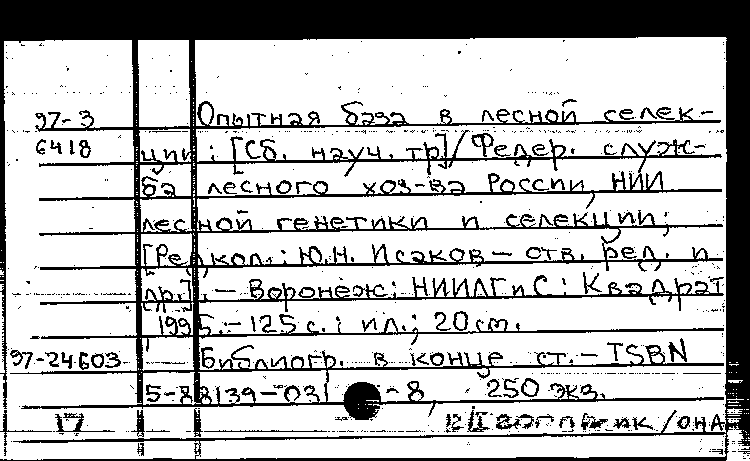 97-3 Опытная база в лесной селек-
6418 ции : [Сб. науч. тр]/ Федер. служ-
ба лесного хоз-ва России, НИИ
лесной генетики и селекции;
[Редкол.: Ю.Н. Исаков – отв. ред. и
др.]. – Воронеж: НИИЛГиС : Квадрат
1995. – 125 с. : ил.; 20 см.
97-24603 Библиогр. в конце ст. – ISBN
5-88139-031 -8, 250 экз.
17 /ОНА